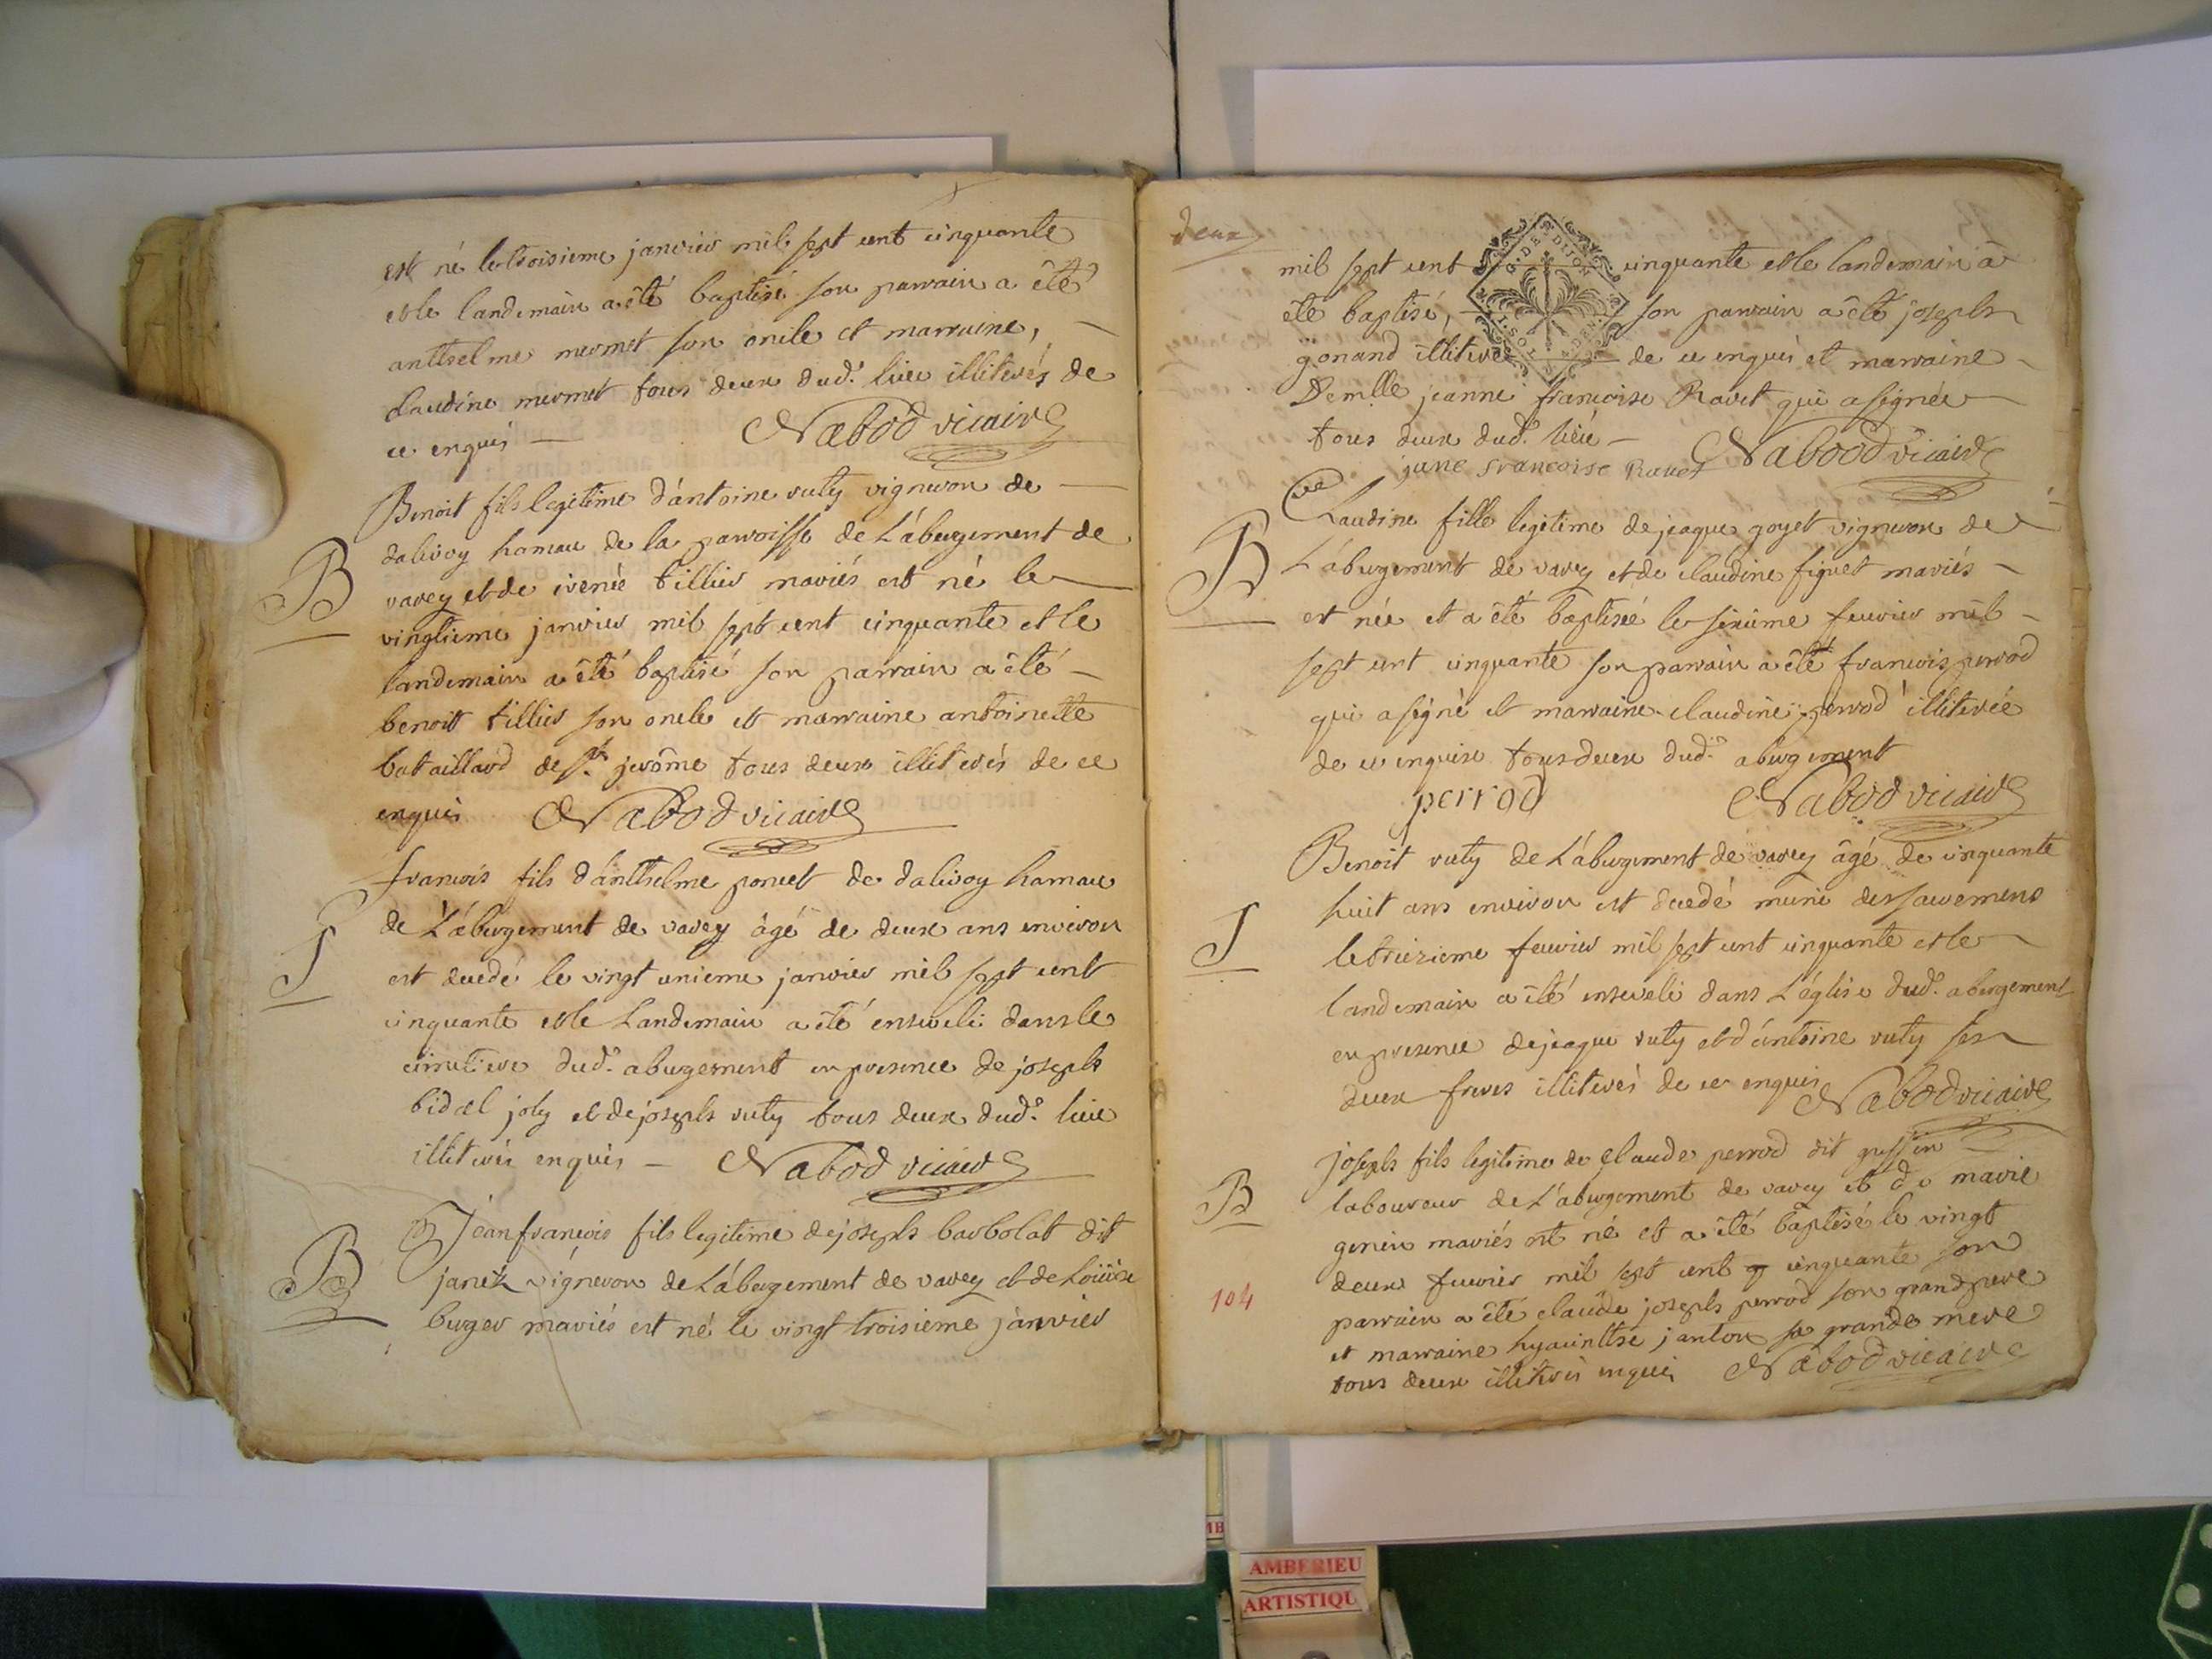 est né le troisieme janvier mil sept cent cinquante
et le landemain a êté baptisé son parrain a êté
anthelme mermet son oncle et marraine,
claudine mermet tous deux dud.t lieu illiterés de
ce enquis — Nabod vicaire
Benoit fils legitime d'antoine ruty vigneron de
B
dalivoy hamau de la parroisse de L'abergement de
varey et de irenée tillier mariés est né le
vingtieme janvier mil sept cent cinquante et le
landemain a êté baptisé son parrain a êté
benoit tillier son oncle et marraine antoinette
bataillard de st. jerôme tous deux illiterés de ce
enquis Nabod vicaire
francois fils d'anthelme poncet de dalivoy hamau
S
de L'abergement de varey âgé de deux ans environ
est decedé le vingt unieme janvier mil sept cent
cinquante et le Landemain a êté enseveli dans le
cimetiere dud.t abergement en presence de joseph
bidal joly et de joseph ruty tous deux dud.t lieu
illiterés enquis — Nabod vicaire
B
Jean francois fils legitime de joseph barbolat dit
janet vigneron de L'abergement de varey et de Loüise
burger mariés est né le vingt troisieme janvier
deux
G. DE DIJON
mil sept cent cinquante et le landemain a
été baptisé, son parrain a êté joseph
gonand illiteré de ce enquis et marraine
Demlle jeanne francoise Ravet qui a signée
tous deux dud.t lieu — Nabod vicaire
jane francoise Ravet
Claudine fille legitime de jeaque goyet vigneron de
B
L'abergement de varey et de claudine figuet mariés
est née et a êté baptiseé le sixieme feuvrier mil
sept cent cinquante son parrain a êté francois perrod
qui a signé et marraine claudine perrod illiterée
de ce enquise tous deux dud.t abergement
perrod Nabod vicaire
Benoit ruty de L'abergement de varey âgé de cinquante
S
huit ans environ est decedé muni des sacremens
le treizieme feuvrier mil sept cent cinquante et le
landemain a êté enseveli dans L'église dud.t abergement
en presence de jeaque ruty et d'antoine ruty ses
deux freres illiterés de ce enquis Nabod vicaire
joseph fils legitime de claude perrod dit
B
laboureur de L'abergement de varey et de marie
genin mariés est né et a êté baptisé le vingt
deux feuvrier mil sept cent cinquante son
104
parrain a êté claude joseph perrod son grand pere
et marraine hyacinthe janton sa grande mere
tous deux illiterés enquis Nabod vicaire
AMBERIEU
ARTISTIQU